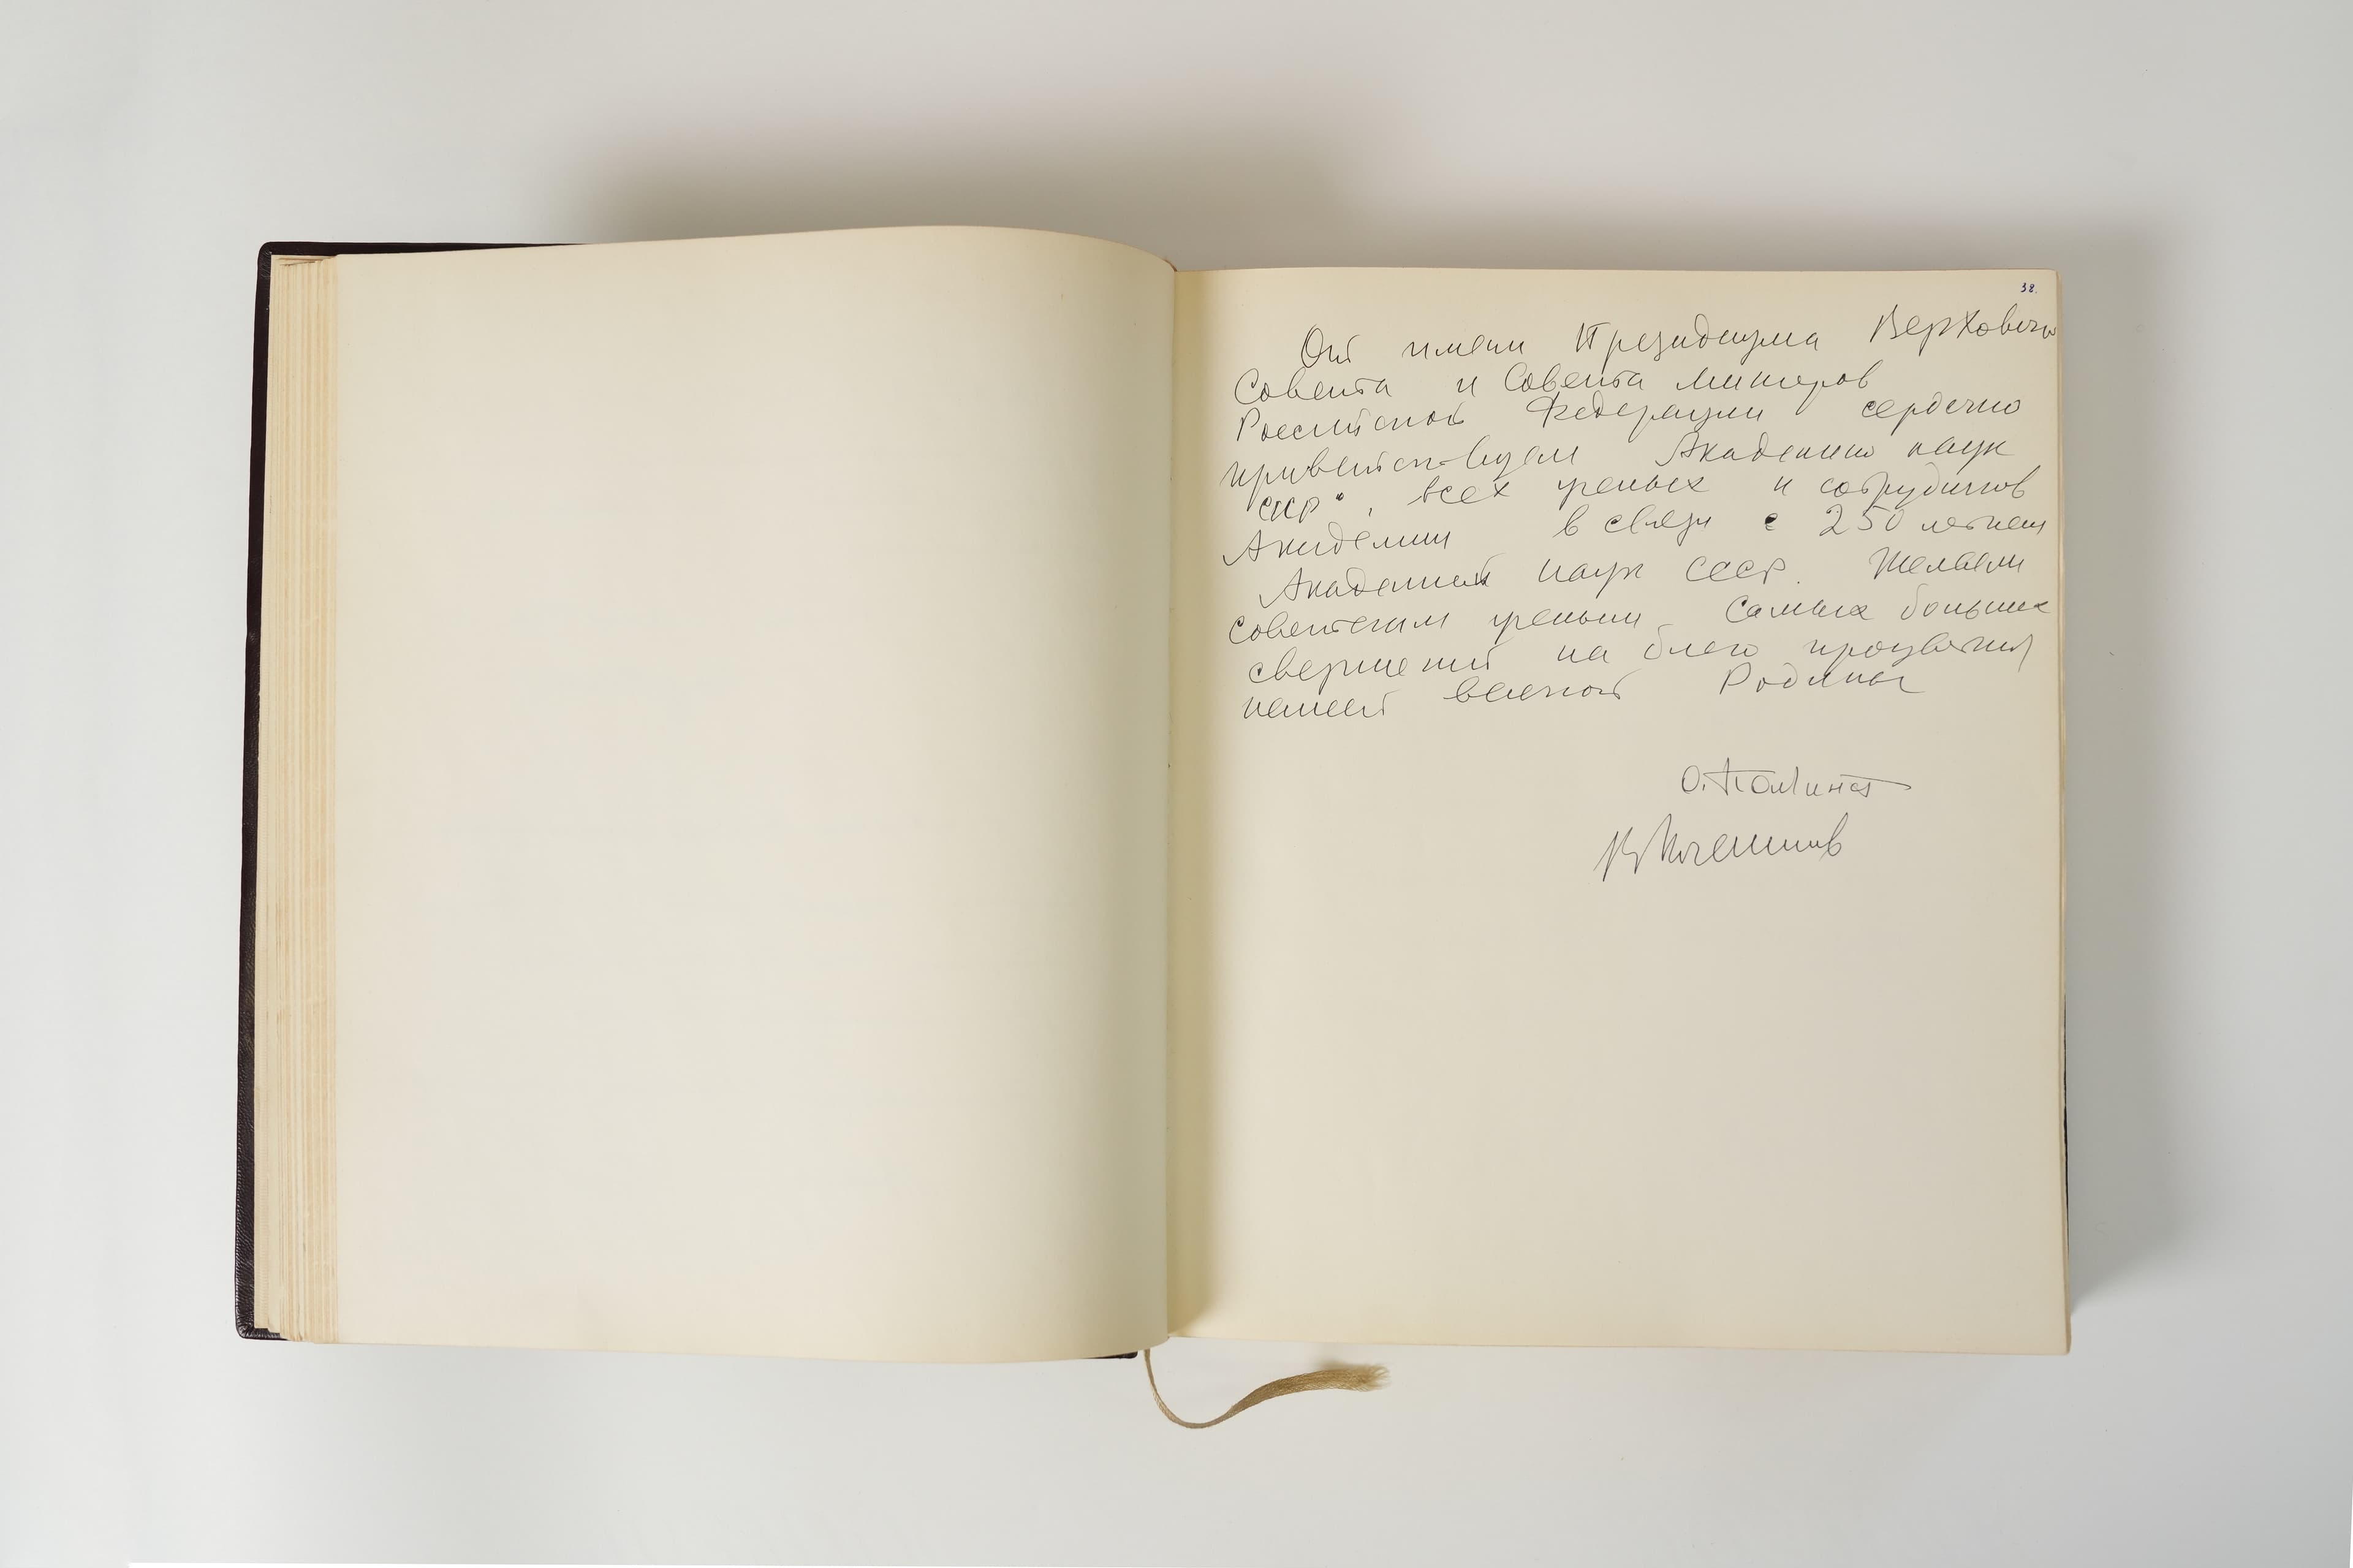 38.
От имени Президиума Верховного
Совета и Совета Министров
Российской Федерации сердечно
приветствуем Академию наук
СССР, всех ученых и сотрудников
Академии в связи с 250 летием
Академии наук СССР. Желаем
советским ученым самых больших
свершений на благо процветания
нашей великой Родины